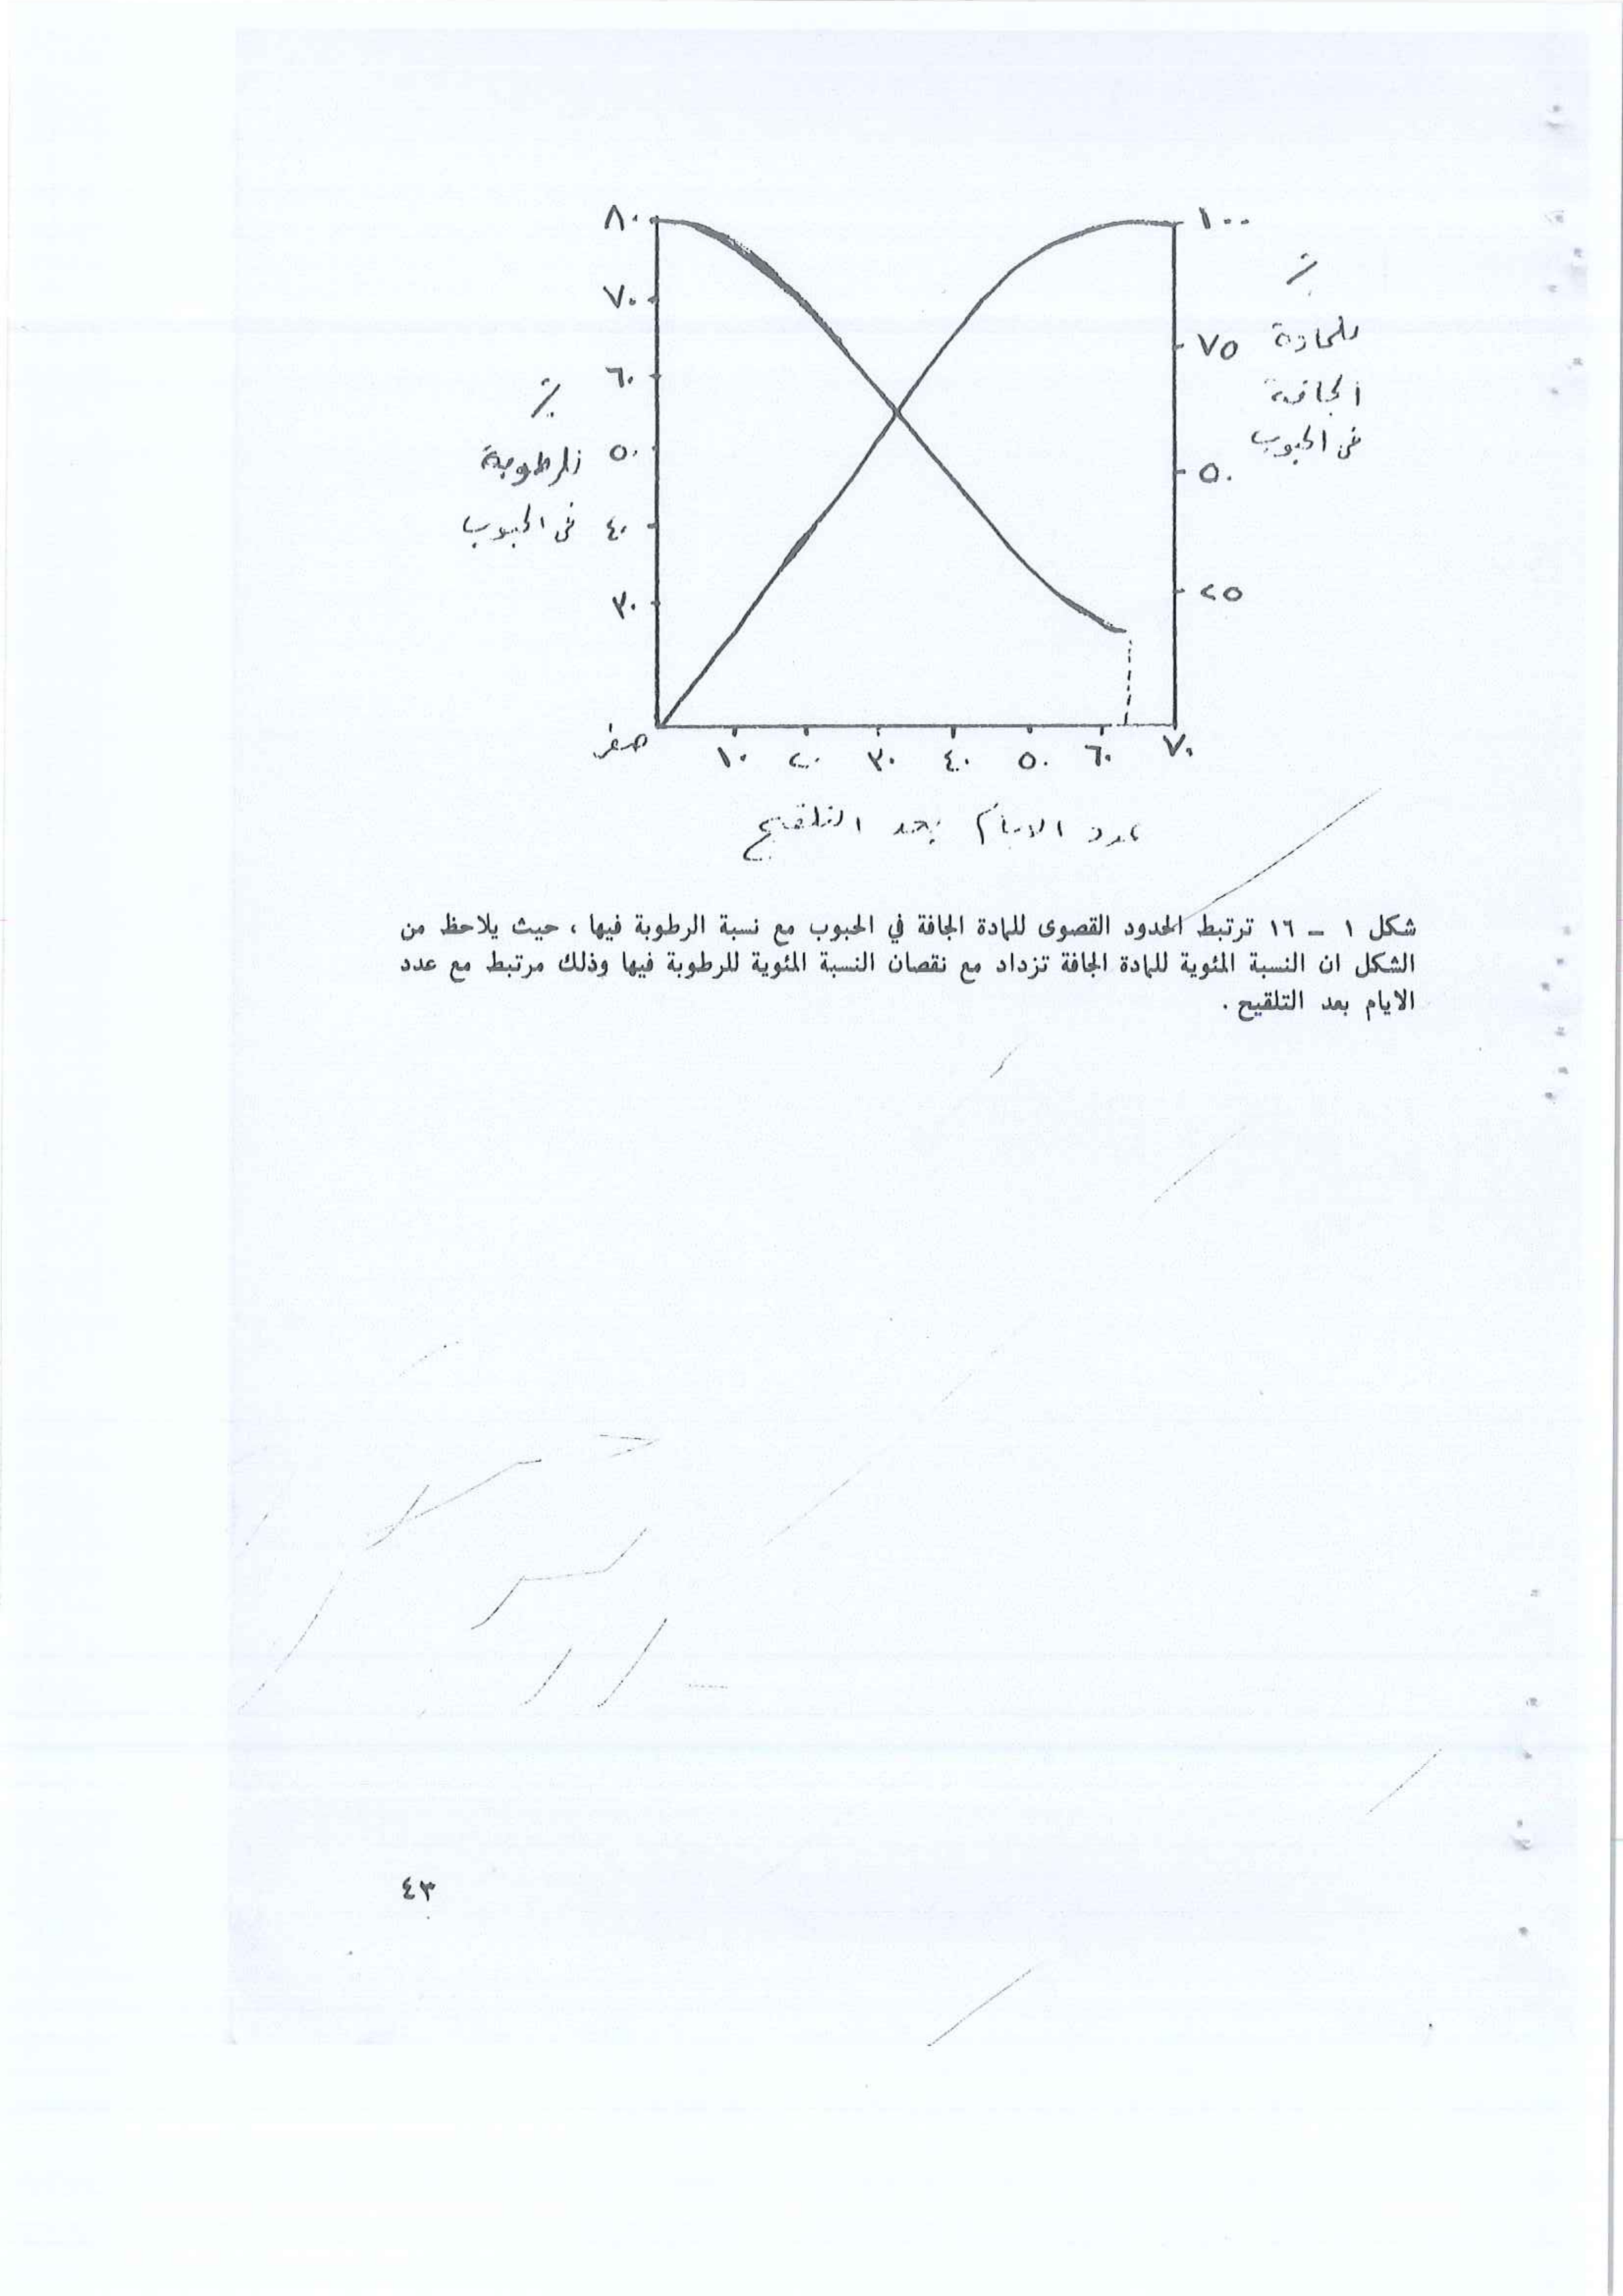 ٨٠
٧٠
٦٠
٥٠
٤٠
٣٠
٪
للرطوبة
في الحبوب
١٠٠
٧٥
٥٠
٢٥
٪
للمادة
الجافة
في الحبوب
صفر ١٠ ٢٠ ٣٠ ٤٠ ٥٠ ٦٠ ٧٠
عدد الايام بعد التلقيح
شكل ١ - ١٦ ترتبط الحدود القصوى للمادة الجافة في الحبوب مع نسبة الرطوبة فيها ، حيث يلاحظ من
الشكل ان النسبة المئوية للمادة الجافة تزداد مع نقصان النسبة المئوية للرطوبة فيها وذلك مرتبط مع عدد
الايام بعد التلقيح .
٤٣